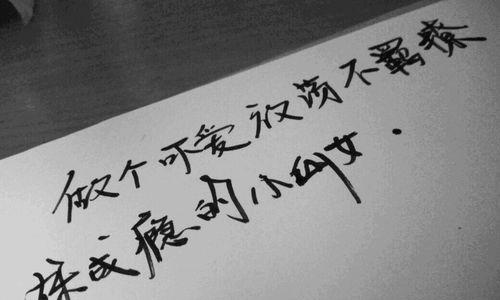 做个可爱放荡不羁撩
妹成瘾的小幼女.